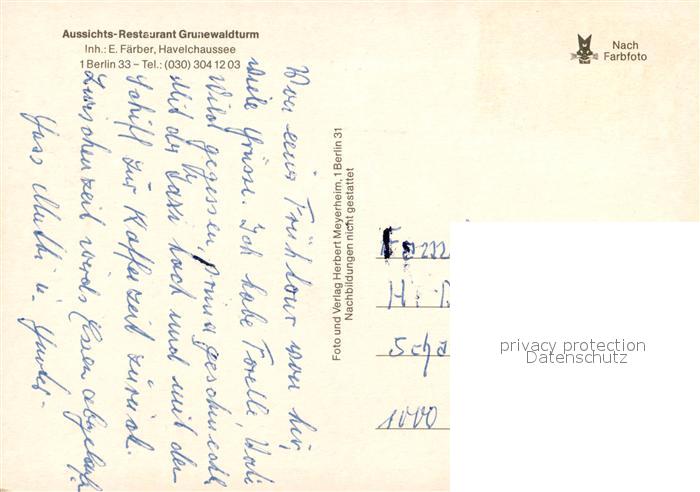 Aussichts-Restaurant Grunewaldturm
Inh.: E. Färber, Havelchaussee
1 Berlin 33 – Tel.: (030) 304 12 03
Nach
Farbfoto
Von einer Frühtour von hier
viele Grüsse. Ich habe Forelle, Vati
Wild gegessen, prima geschmeckt.
Mit der Taxi hoch und mit dem
Schiff zur Kaffeezeit zurück.
Zwischenzeit wird's Essen abgelauf.
Mutti u.
Foto und Verlag Herbert Meyerheim, 1 Berlin 31
Nachbildungen nicht gestattet
Fam
H.
Scha
1000
privacy protection
Datenschutz